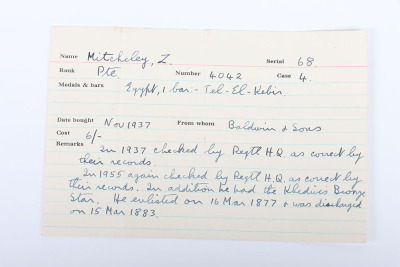 Name Mitcheley, Z. Serial 68
Rank Pte. Number 4042 Case 4.
Medals & bars Egypt, 1 bar. - Tel-El-Kebir.
Date bought Nov 1937 From whom Baldwin & Sons
Cost 6/-
Remarks In 1937 checked by Regtl H.Q. as correct by
their records.
In 1955 again checked by Regtl H.Q. as correct by
their records. In addition he had the Khedives Bronze
Star. He enlisted on 16 Mar 1877 & was discharged
on 15 Mar 1883.